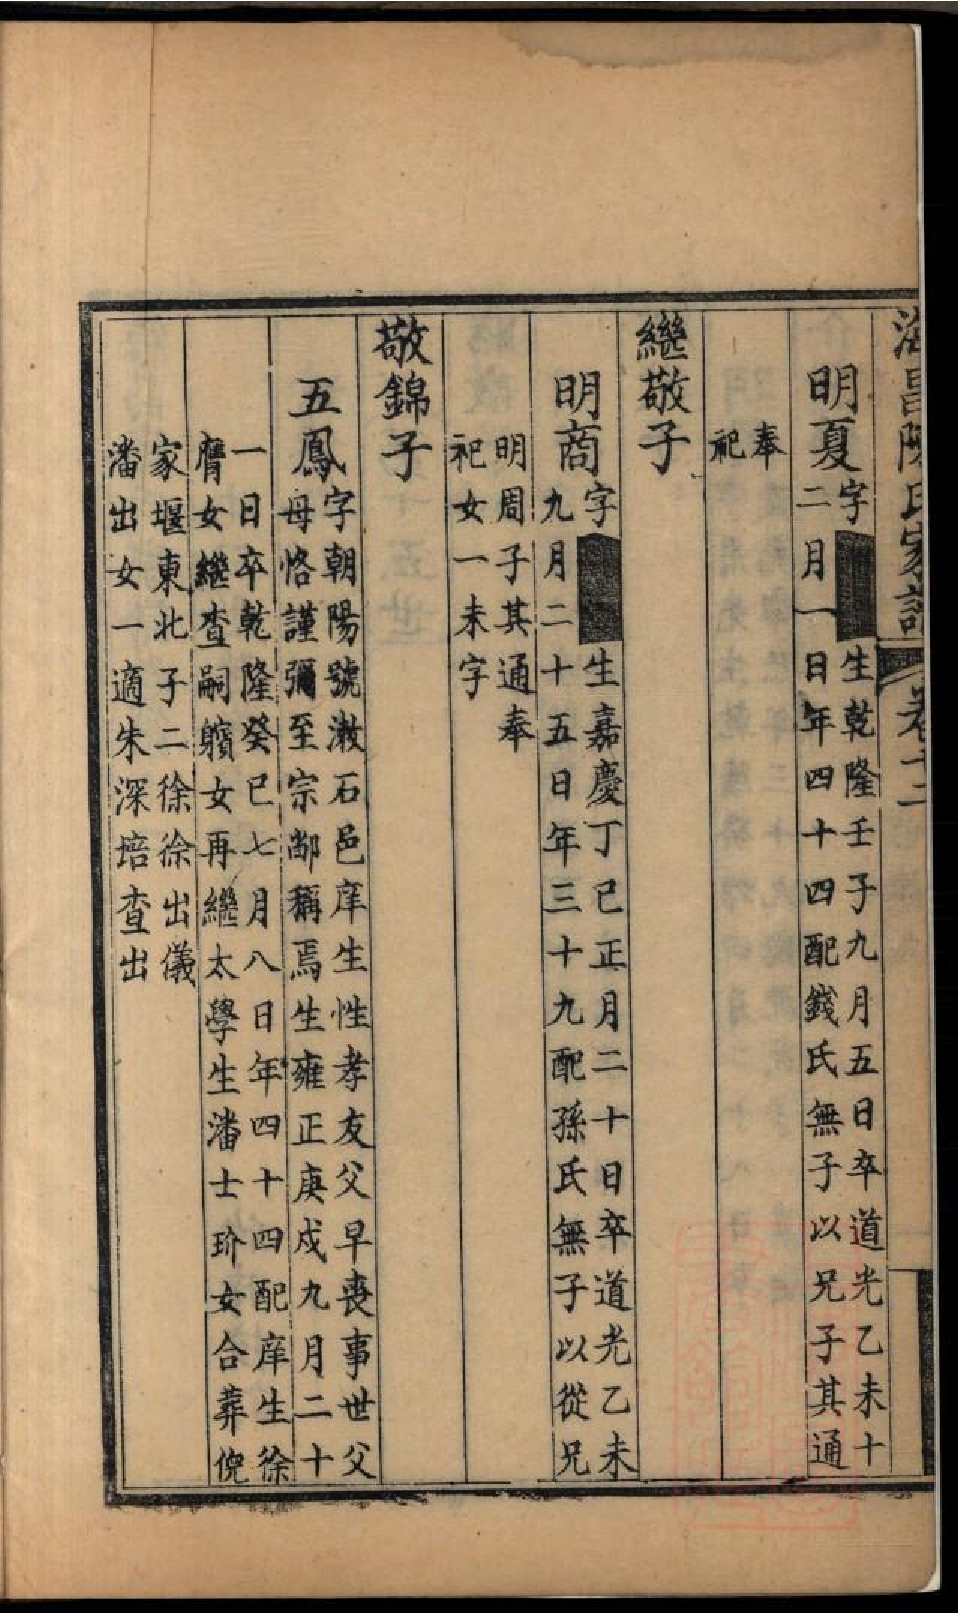 海昌陳氏家譜 卷十二
明夏字
生乾隆壬子九月五日卒道光乙未十
二月一日年四十四配錢氏無子以兄子其通
奉
祀
繼敬子
明商字
生嘉慶丁巳正月二十日卒道光乙未
九月二十五日年三十九配孫氏無子以從兄
明周子其通奉
祀女一未字
敬錦子
五鳳字朝陽號漵石邑庠生性孝友父早喪事世父
母恪謹彌至宗鄰稱焉生雍正庚戌九月二十
一日卒乾隆癸巳七月八日年四十四配庠生徐
膺女繼查嗣鑌女再繼太學生潘士玠女合葬倪
家堰東北子二徐徐出儀
潘出女一適朱深培查出